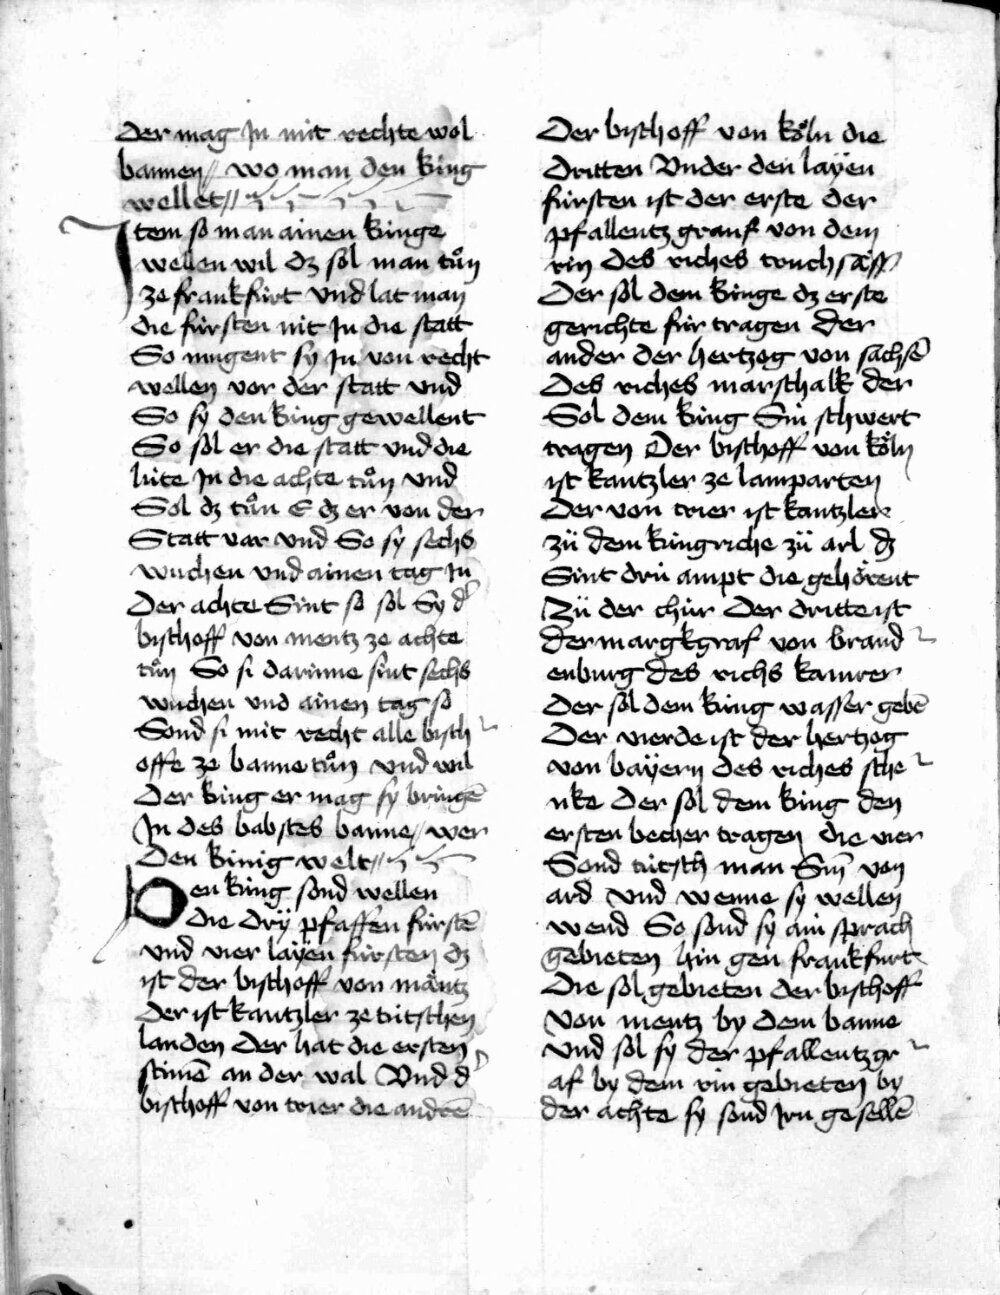 Der mag Jn mit rechte wol
bannen // wo man den king
wellet //
Jtem so man ainen kinge
wellen wil dz sol man tuͦn
ze frankfúrt Vnd lat man
die fúrsten nit Jn die statt
So mugent sy Jn von recht
wellen vor der statt vnd
So sy den king gewellent
So sol er die statt vnd die
lúte Jn die achte tuͦn vnd
Sol dz tuͦn E dz er von der
Statt var vnd So sy sechs
wuchen vnd ainen tag Jn
Der achte Sint so sol Sy dˀ
bischoff von mentz ze achte
tuͦn So si darinne sint sechs
wuchen vnd ainen tag so
Sond si mit recht alle bisch
offe ze banne tuͦn vnd wil
Der king er mag sy bringē
Jn des babstes banne // wer
Den kinig welt //
Den king sond wellen
die drÿ pfaffen fúrstē
vnd vier laÿen fúrsten dz
ist der bischoff von mäntz
der ist kantzler ze tútschen
landen Der hat die ersten
stimē an der wal Vnd dˀ
bischoff von trier die andrē
Der bischoff von köln die
dritten Vnder den laÿen
fúrsten ist der erste der
pfallentz grauf von dem
rin des riches truchsäss
Der sol dem kinge dz erste
gerichte fúr tragen Der
ander der hertzog von sachsē
Des riches marschalk der
Sol dem king Sin schwert
tragen Der bischoff von köln
ist kantzler ze lamparten
Der von trier ist kantzler
zü dem kingriche zü arl dz
Sint drú ampt die gehörent
Zü der chúr Der dritte ist
der margkgraf von brand
enburg des richs kamrer
Der sol dem king wasser gebē
Der vierde ist der hertzog
von baÿern des riches sche
nke Der sol dem king den
ersten becher tragen die vier
Sond tútsch man Sin von
ard vnd wenne sy wellen
wend So sond sy ain sprach
gebieten hin gen frankfurt
Die sol gebieten der bischoff
Von mentz by dem banne
Vnd sol sy der pfallentzgr
af by dem rin gebieten by
der achte sy sond Jrn gesellē